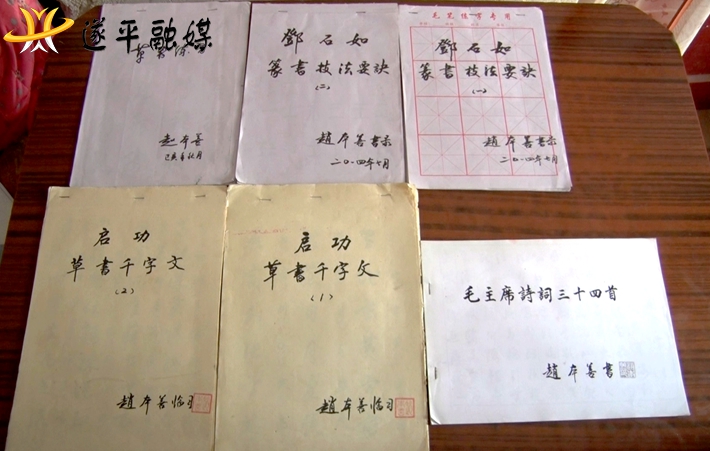 遂平融媒
赵本善
鄧石如
篆書技法要訣
(二)
趙本善書录
二〇一四年七月
毛笔练字专用
鄧石如
篆書技法要訣
(一)
趙本善書录
二〇一四年七月
启功
草書千字文
(2)
趙本善临习
启功
草書千字文
(1)
趙本善临习
毛主席詩詞三十四首
趙本善書